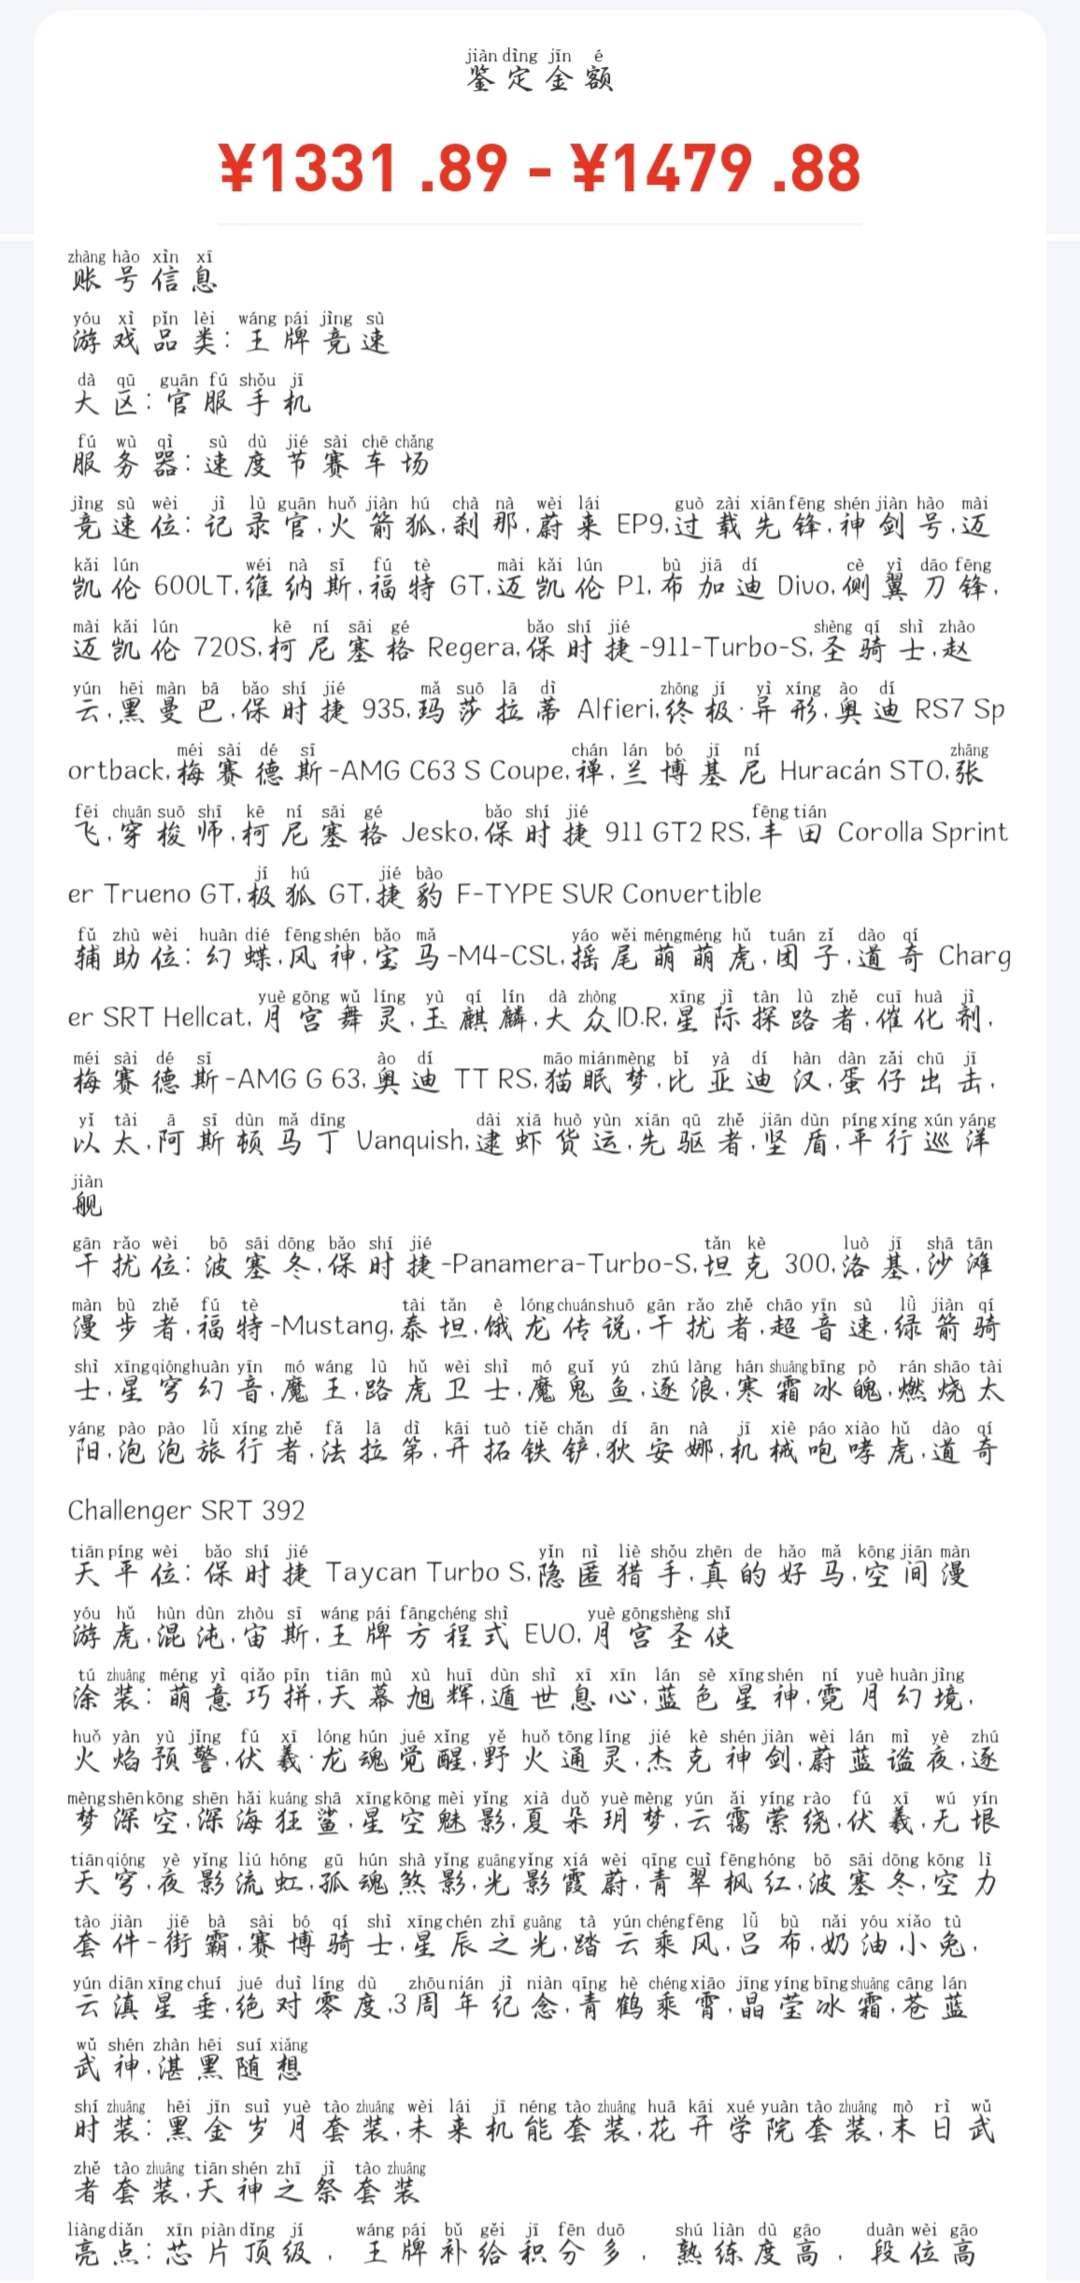 鉴定金额
¥1331.89 - ¥1479.88
账号信息
游戏品类:王牌竞速
大区:官服手机
服务器:速度节赛车场
竞速位:记录官,火箭狐,刹那,蔚来 EP9,过载先锋,神剑号,迈
凯伦 600LT,维纳斯,福特 GT,迈凯伦 P1,布加迪 Divo,侧翼刀锋,
迈凯伦 720S,柯尼塞格 Regera,保时捷-911-Turbo-S,圣骑士,赵
云,黑曼巴,保时捷 935,玛莎拉蒂 Alfieri,终极·异形,奥迪 RS7 Sp
ortback,梅赛德斯-AMG C63 S Coupe,禅,兰博基尼 Huracán STO,张
飞,穿梭师,柯尼塞格 Jesko,保时捷 911 GT2 RS,丰田 Corolla Sprint
er Trueno GT,极狐 GT,捷豹 F-TYPE SVR Convertible
辅助位:幻蝶,风神,宝马-M4-CSL,摇尾萌萌虎,团子,道奇 Charg
er SRT Hellcat,月宫舞灵,玉麒麟,大众ID.R,星际探路者,催化剂,
梅赛德斯-AMG G 63,奥迪 TT RS,猫眠梦,比亚迪汉,蛋仔出击,
以太,阿斯顿马丁 Vanquish,逮虾货运,先驱者,坚盾,平行巡洋
舰
干扰位:波塞冬,保时捷-Panamera-Turbo-S,坦克 300,洛基,沙滩
漫步者,福特-Mustang,泰坦,饿龙传说,干扰者,超音速,绿箭骑
士,星穹幻音,魔王,路虎卫士,魔鬼鱼,逐浪,寒霜冰魄,燃烧太
阳,泡泡旅行者,法拉第,开拓铁铲,狄安娜,机械咆哮虎,道奇
Challenger SRT 392
天平位:保时捷 Taycan Turbo S,隐匿猎手,真的好马,空间漫
游虎,混沌,宙斯,王牌方程式 EVO,月宫圣使
涂装:萌意巧拼,天幕旭辉,遁世息心,蓝色星神,霓月幻境,
火焰预警,伏羲·龙魂觉醒,野火通灵,杰克神剑,蔚蓝谧夜,逐
梦深空,深海狂鲨,星空魅影,夏朵玥梦,云霭萦绕,伏羲,无垠
天穹,夜影流虹,孤魂煞影,光影霞蔚,青翠枫红,波塞冬,空力
套件-街霸,赛博骑士,星辰之光,踏云乘风,吕布,奶油小兔,
云滇星垂,绝对零度,3周年纪念,青鹤乘霄,晶莹冰霜,苍蓝
武神,湛黑随想
时装:黑金岁月套装,未来机能套装,花开学院套装,末日武
者套装,天神之祭套装
亮点:芯片顶级,王牌补给积分多,熟练度高,段位高